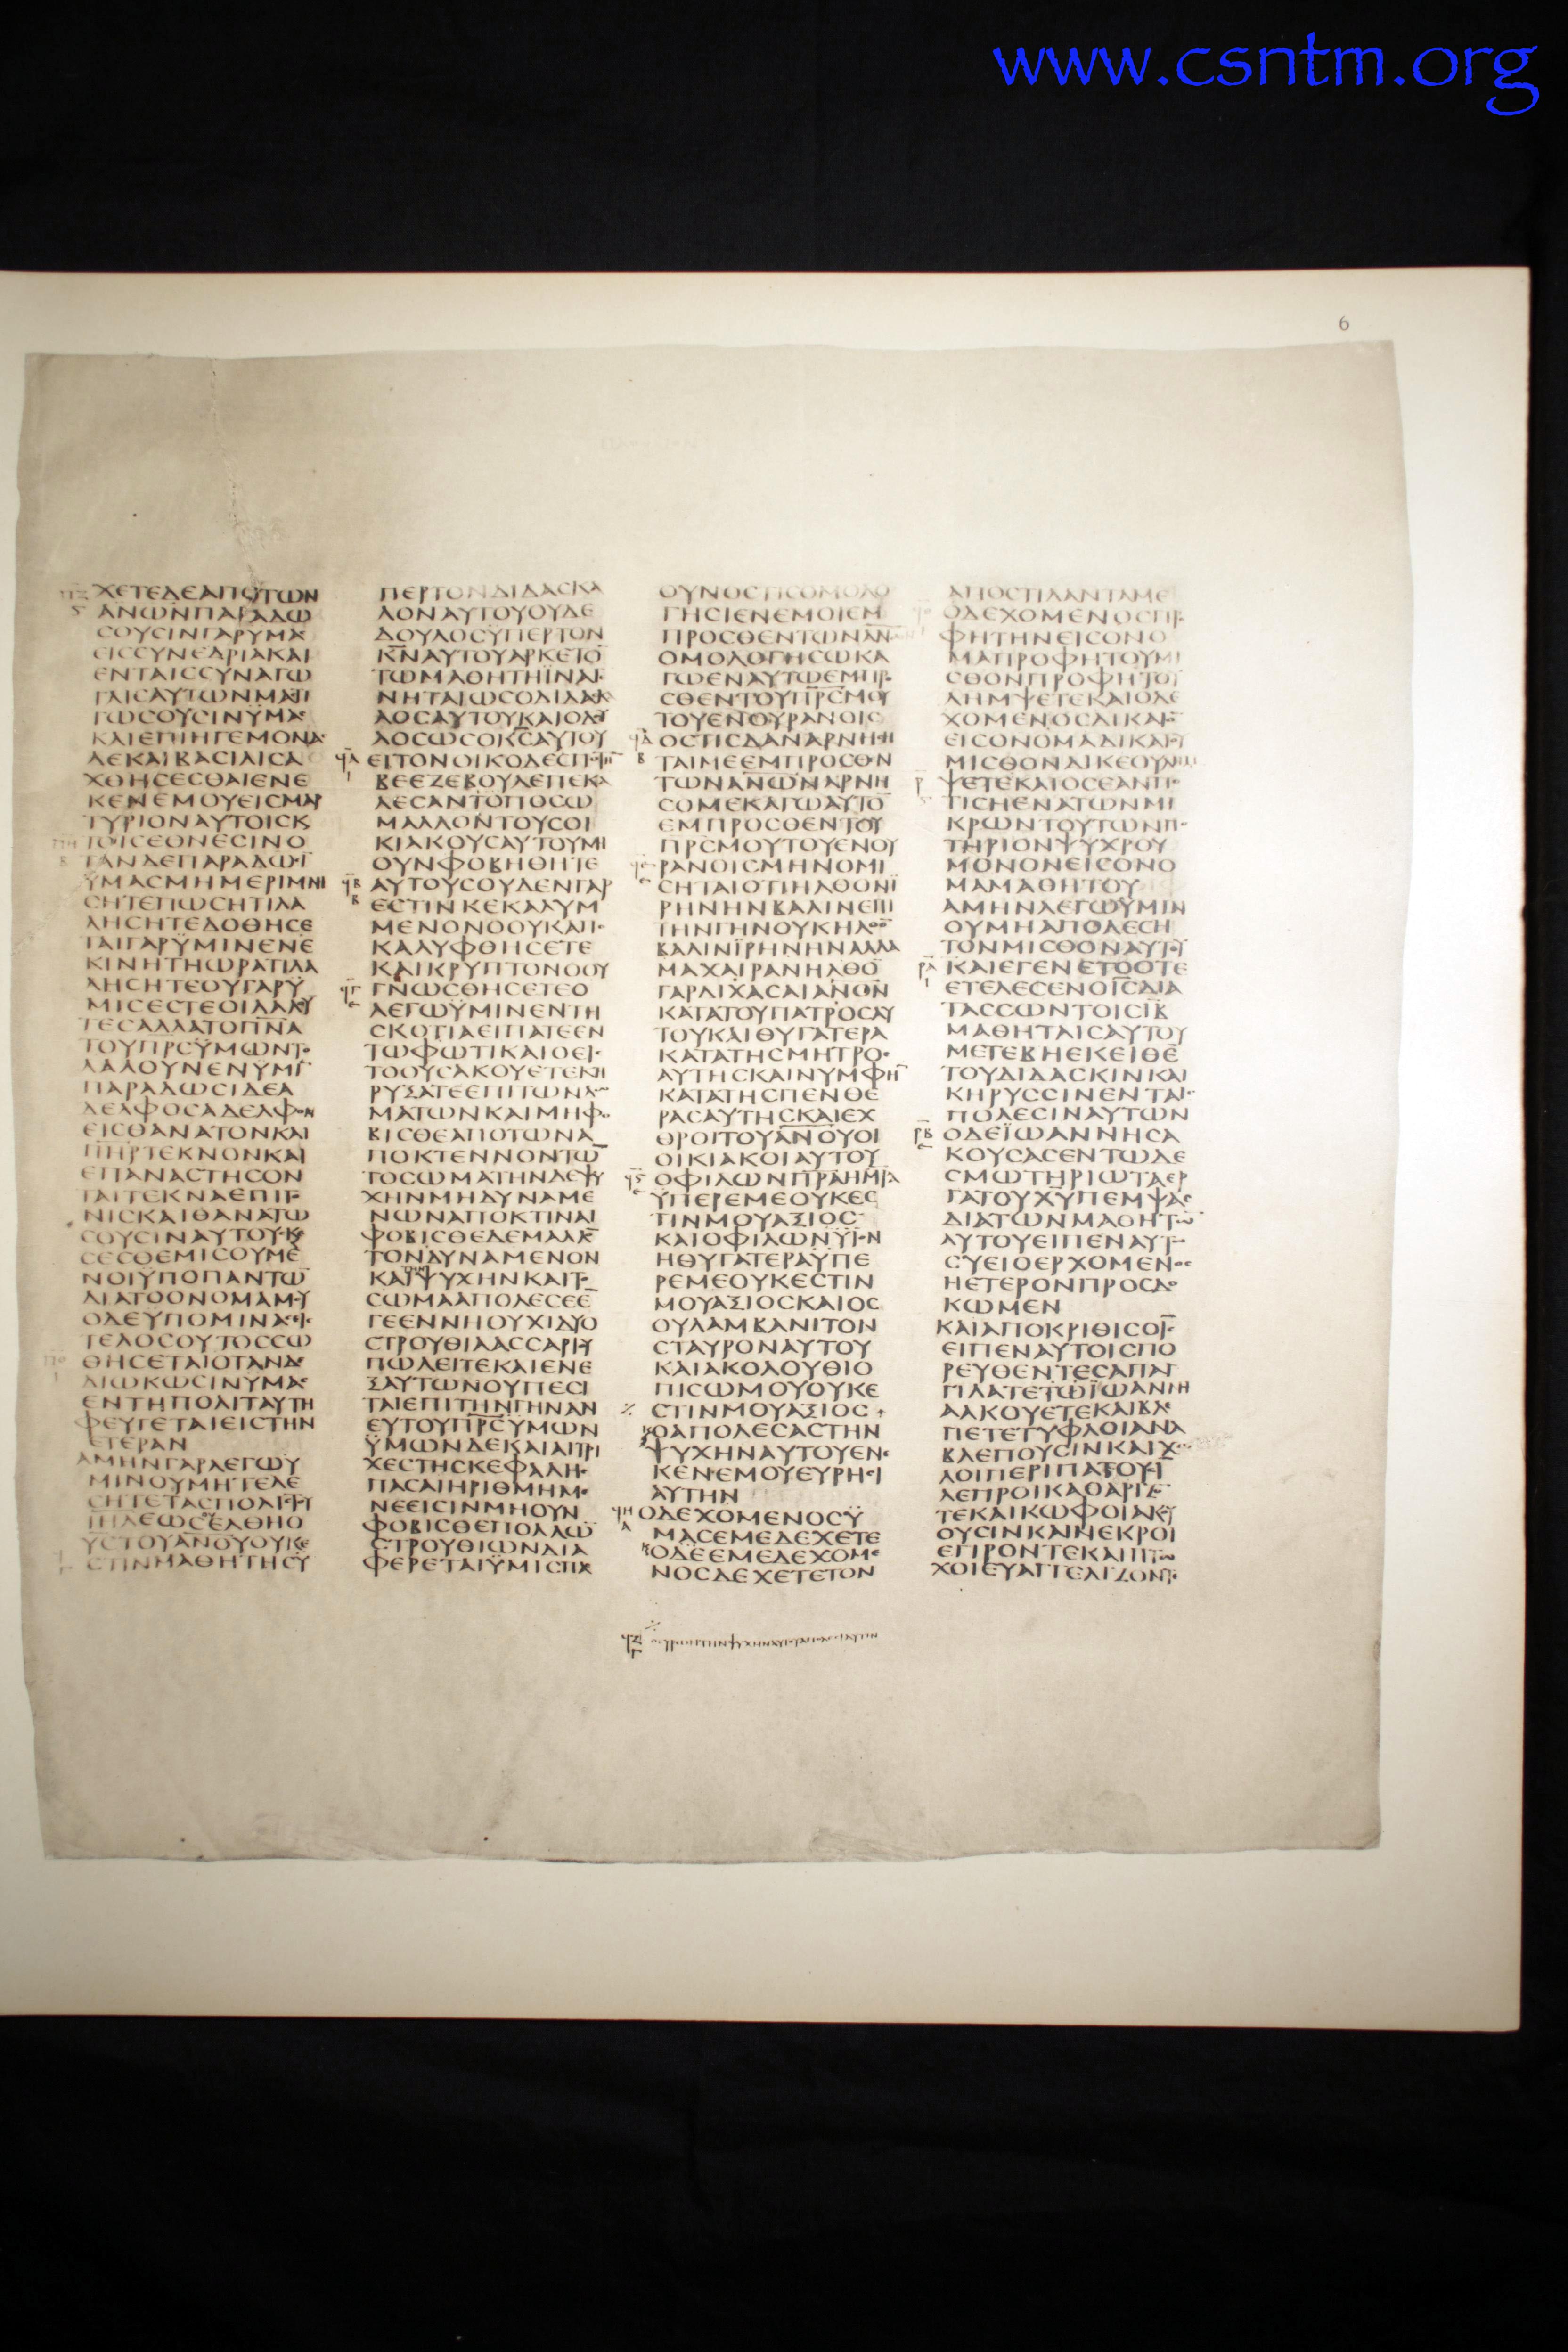 www.csntm.org
6
ΧΕΤΕΔΕΑΠΟΤΩΝ
ΑΝΩΝΠΑΡΑΔΩ
ϹΟΥϹΙΝΓΑΡΥΜΑϹ
ΕΙϹϹΥΝΕΔΡΙΑΚΑΙ
ΕΝΤΑΙϹϹΥΝΑΓΩ
ΓΑΙϹΑΥΤΩΝΜΑϹΤΙ
ΓΩϹΟΥϹΙΝΫΜΑϹ
ΚΑΙΕΠΙΗΓΕΜΟΝΑϹ
ΔΕΚΑΙΒΑϹΙΛΙϹΑ
ΧΘΗϹΕϹΘΑΙΕΝΕ
ΚΕΝΕΜΟΥΕΙϹΜΑΡ
ΤΥΡΙΟΝΑΥΤΟΙϹΚΑΙ
ΤΟΙϹΕΘΝΕϹΙΝΟ
ΤΑΝΔΕΠΑΡΑΔΩϹΙ̅
ΫΜΑϹΜΗΜΕΡΙΜΝΗ
ϹΗΤΕΠΩϹΗΤΙΛΑ
ΛΗϹΗΤΕΔΟΘΗϹΕ
ΤΑΙΓΑΡΫΜΙΝΕΝΕ
ΚΙΝΗΤΗΩΡΑΤΙΛΑ
ΛΗϹΗΤΕΟΥΓΑΡΫ
ΜΙϹΕϹΤΕΟΙΛΑΛΟΥ
ΤΕϹΑΛΛΑΤΟΠΝ̅Α̅
ΤΟΥΠΡ̅Ϲ̅ΫΜΩΝΤΟ
ΛΑΛΟΥΝΕΝΫΜΙ̅
ΠΑΡΑΔΩϹΙΔΕΑ
ΔΕΛΦΟϹΑΔΕΛΦΟΝ
ΕΙϹΘΑΝΑΤΟΝΚΑΙ
ΠΗΡΤΕΚΝΟΝΚΑΙ
ΕΠΑΝΑϹΤΗϹΟΝ
ΤΑΙΤΕΚΝΑΕΠΙΓΟ
ΝΙϹΚΑΙΘΑΝΑΤΩ
ϹΟΥϹΙΝΑΥΤΟΥϹΚΑΙ
ϹΕϹΘΕΜΙϹΟΥΜΕ
ΝΟΙΫΠΟΠΑΝΤΩ̅
ΔΙΑΤΟΟΝΟΜΑΜΟΥ
ΟΔΕΥΠΟΜΙΝΑϹΕΙϹ
ΤΕΛΟϹΟΥΤΟϹϹΩ
ΘΗϹΕΤΑΙΟΤΑΝΔΕ
ΔΙΩΚΩϹΙΝΥΜΑϹ
ΕΝΤΗΠΟΛΙΤΑΥΤΗ
ΦΕΥΓΕΤΑΙΕΙϹΤΗΝ
ΕΤΕΡΑΝ
ΑΜΗΝΓΑΡΛΕΓΩΫ
ΜΙΝΟΥΜΗΤΕΛΕ
ϹΗΤΕΤΑϹΠΟΛΙϹΤΟΥ
ΙΗΛΕΩϹΕΛΘΗΟ
ΥϹΤΟΥΑΝ̅Ο̅Υ̅ΟΥΚΕ
ϹΤΙΝΜΑΘΗΤΗϹΫ
ΠΕΡΤΟΝΔΙΔΑϹΚΑ
ΛΟΝΑΥΤΟΥΟΥΔΕ
ΔΟΥΛΟϹΫΠΕΡΤΟΝ
Κ̅Ν̅ΑΥΤΟΥΑΡΚΕΤΟ̅
ΤΩΜΑΘΗΤΗΪΝΑΓΕ
ΝΗΤΑΙΩϹΟΔΙΔΑϹΚΑ
ΛΟϹΑΥΤΟΥΚΑΙΟΔΟΥ
ΛΟϹΩϹΟΚ̅Ϲ̅ΑΥΤΟΥ
ΕΙΤΟΝΟΙΚΟΔΕϹΠΟΤΗ̅
ΒΕΕΖΕΒΟΥΛΕΠΕΚΑ
ΛΕϹΑΝΤΟΠΟϹΩ
ΜΑΛΛΟΝΤΟΥϹΟΙ
ΚΙΑΚΟΥϹΑΥΤΟΥΜΗ
ΟΥΝΦΟΒΗΘΗΤΕ
ΑΥΤΟΥϹΟΥΔΕΝΓΑΡ
ΕϹΤΙΝΚΕΚΑΛΥΜ
ΜΕΝΟΝΟΟΥΚΑΠΟ
ΚΑΛΥΦΘΗϹΕΤΕ
ΚΑΙΚΡΥΠΤΟΝΟΟΥ
ΓΝΩϹΘΗϹΕΤΕΟ
ΛΕΓΩΫΜΙΝΕΝΤΗ
ϹΚΟΤΙΑΕΙΠΑΤΕΕΝ
ΤΩΦΩΤΙΚΑΙΟΕΙϹ
ΤΟΟΥϹΑΚΟΥΕΤΕΚΗ
ΡΥΞΑΤΕΕΠΙΤΩΝΔΩ
ΜΑΤΩΝΚΑΙΜΗΦΟ
ΒΙϹΘΕΑΠΟΤΩΝΑ
ΠΟΚΤΕΝΝΟΝΤΩ̅
ΤΟϹΩΜΑΤΗΝΔΕΨΥ
ΧΗΝΜΗΔΥΝΑΜΕ
ΝΩΝΑΠΟΚΤΙΝΑΙ
ΦΟΒΙϹΘΕΔΕΜΑΛΛΟ̅
ΤΟΝΔΥΝΑΜΕΝΟΝ
ΚΑΙΨΥΧΗΝΚΑΙΤΟ
ϹΩΜΑΑΠΟΛΕϹΕΕ̅
ΓΕΕΝΝΗΟΥΧΙΔΥΟ
ϹΤΡΟΥΘΙΑΑϹϹΑΡΙΟΥ
ΠΩΛΕΙΤΕΚΑΙΕΝΕ
ΞΑΥΤΩΝΟΥΠΕϹΙ
ΤΑΙΕΠΙΤΗΝΓΗΝΑΝ
ΕΥΤΟΥΠΡ̅Ϲ̅ΫΜΩΝ
ΫΜΩΝΔΕΚΑΙΑΙΤΡΙ
ΧΕϹΤΗϹΚΕΦΑΛΗϹ
ΠΑϹΑΙΗΡΙΘΜΗΜΕ
ΝΕΕΙϹΙΝΜΗΟΥΝ
ΦΟΒΙϹΘΕΠΟΛΛΩ̅
ϹΤΡΟΥΘΙΩΝΔΙΑ
ΦΕΡΕΤΑΙΫΜΙϹΠΑϹ
ΟΥΝΟϹΤΙϹΟΜΟΛΟ
ΓΗϹΙΕΝΕΜΟΙΕΜ
ΠΡΟϹΘΕΝΤΩΝΑΝ̅Ω̅Ν̅
ΟΜΟΛΟΓΗϹΩΚΑ
ΓΩΕΝΑΥΤΩΕΜΠΡΟ
ϹΘΕΝΤΟΥΠΡ̅Ϲ̅ΜΟΥ
ΤΟΥΕΝΟΥΡΑΝΟΙϹ
ΟϹΤΙϹΔΑΝΑΡΝΗϹΗ
ΤΑΙΜΕΕΜΠΡΟϹΘΕΝ
ΤΩΝΑΝ̅Ω̅Ν̅ΑΡΝΗ
ϹΟΜΕΚΑΓΩΑΥΤΟ̅
ΕΜΠΡΟϹΘΕΝΤΟΥ
ΠΡ̅Ϲ̅ΜΟΥΤΟΥΕΝΟΥ
ΡΑΝΟΙϹΜΗΝΟΜΙ
ϹΗΤΑΙΟΤΙΗΛΘΟΝΪ
ΡΗΝΗΝΒΑΛΙΝΕΠΙ
ΤΗΝΓΗΝΟΥΚΗΛΘΟ̅
ΒΑΛΙΝΪΡΗΝΗΝΑΛΛΑ
ΜΑΧΑΙΡΑΝΗΛΘΟ̅
ΓΑΡΔΙΧΑϹΑΙΑΝ̅Ο̅Ν̅
ΚΑΤΑΤΟΥΠΑΤΡΟϹΑΥ
ΤΟΥΚΑΙΘΥΓΑΤΕΡΑ
ΚΑΤΑΤΗϹΜΗΤΡΟϹ
ΑΥΤΗϹΚΑΙΝΥΜΦΗ̅
ΚΑΤΑΤΗϹΠΕΝΘΕ
ΡΑϹΑΥΤΗϹΚΑΙΕΧ
ΘΡΟΙΤΟΥΑΝ̅Ο̅Υ̅ΟΙ
ΟΙΚΙΑΚΟΙΑΥΤΟΥ
ΟΦΙΛΩΝΠΡ̅Α̅ΗΜΡ̅Α̅
ΫΠΕΡΕΜΕΟΥΚΕϹ
ΤΙΝΜΟΥΑΞΙΟϹ
ΚΑΙΟΦΙΛΩΝΫΙΟΝ
ΗΘΥΓΑΤΕΡΑΫΠΕ
ΡΕΜΕΟΥΚΕϹΤΙΝ
ΜΟΥΑΞΙΟϹΚΑΙΟϹ
ΟΥΛΑΜΒΑΝΙΤΟΝ
ϹΤΑΥΡΟΝΑΥΤΟΥ
ΚΑΙΑΚΟΛΟΥΘΙΟ
ΠΙϹΩΜΟΥΟΥΚΕ
ϹΤΙΝΜΟΥΑΞΙΟϹ
ΟΑΠΟΛΕϹΑϹΤΗΝ
ΨΥΧΗΝΑΥΤΟΥΕΝΕ
ΚΕΝΕΜΟΥΕΥΡΗϹΙ
ΑΥΤΗΝ
ΟΔΕΧΟΜΕΝΟϹΫ
ΜΑϹΕΜΕΔΕΧΕΤΕ
ΟΔΕΕΜΕΔΕΧΟΜΕ
ΝΟϹΔΕΧΕΤΕΤΟΝ
ΑΠΟϹΤΙΛΑΝΤΑΜΕ
ΟΔΕΧΟΜΕΝΟϹΠΡΟ
ΦΗΤΗΝΕΙϹΟΝΟ
ΜΑΠΡΟΦΗΤΟΥΜΙ
ϹΘΟΝΠΡΟΦΗΤΟΥ
ΛΗΜΨΕΤΕΚΑΙΟΔΕ
ΧΟΜΕΝΟϹΔΙΚΑΙΟ̅
ΕΙϹΟΝΟΜΑΔΙΚΑΙΟΥ
ΜΙϹΘΟΝΔΙΚΕΟΥΛΗΜ
ΨΕΤΕΚΑΙΟϹΕΑΝΠΟ
ΤΙϹΗΕΝΑΤΩΝΜΙ
ΚΡΩΝΤΟΥΤΩΝΠΟ
ΤΗΡΙΟΝΨΥΧΡΟΥ
ΜΟΝΟΝΕΙϹΟΝΟ
ΜΑΜΑΘΗΤΟΥ
ΑΜΗΝΛΕΓΩΫΜΙΝ
ΟΥΜΗΑΠΟΛΕϹΗ
ΤΟΝΜΙϹΘΟΝΑΥΤΟΥ
ΚΑΙΕΓΕΝΕΤΟΟΤΕ
ΕΤΕΛΕϹΕΝΟΙ̅Ϲ̅ΔΙΑ
ΤΑϹϹΩΝΤΟΙϹΙ̅Β̅
ΜΑΘΗΤΑΙϹΑΥΤΟΥ
ΜΕΤΕΒΗΕΚΕΙΘΕ̅
ΤΟΥΔΙΔΑϹΚΙΝΚΑΙ
ΚΗΡΥϹϹΙΝΕΝΤΑΙϹ
ΠΟΛΕϹΙΝΑΥΤΩΝ
ΟΔΕΪΩΑΝΝΗϹΑ
ΚΟΥϹΑϹΕΝΤΩΔΕ
ϹΜΩΤΗΡΙΩΤΑΕΡ
ΓΑΤΟΥΧ̅Υ̅ΠΕΜΨΑϹ
ΔΙΑΤΩΝΜΑΘΗΤΩ̅
ΑΥΤΟΥΕΙΠΕΝΑΥΤΩ
ϹΥΕΙΟΕΡΧΟΜΕΝΟϹ
ΗΕΤΕΡΟΝΠΡΟϹΔΟ
ΚΩΜΕΝ
ΚΑΙΑΠΟΚΡΙΘΙϹΟΙ̅Ϲ̅
ΕΙΠΕΝΑΥΤΟΙϹΠΟ
ΡΕΥΘΕΝΤΕϹΑΠΑΓ
ΓΙΛΑΤΕΤΩΪΩΑΝΝΗ
ΑΑΚΟΥΕΤΕΚΑΙΒΛΕ
ΠΕΤΕΤΥΦΛΟΙΑΝΑ
ΒΛΕΠΟΥϹΙΝΚΑΙΧΩ
ΛΟΙΠΕΡΙΠΑΤΟΥϹΙ
ΛΕΠΡΟΙΚΑΘΑΡΙΖΟ̅
ΤΕΚΑΙΚΩΦΟΙΑΚΟΥ
ΟΥϹΙΝΚΑΙΝΕΚΡΟΙ
ΕΓΙΡΟΝΤΕΚΑΙΠΤΩ
ΧΟΙΕΥΑΓΓΕΛΙΖΟΝΤΕ